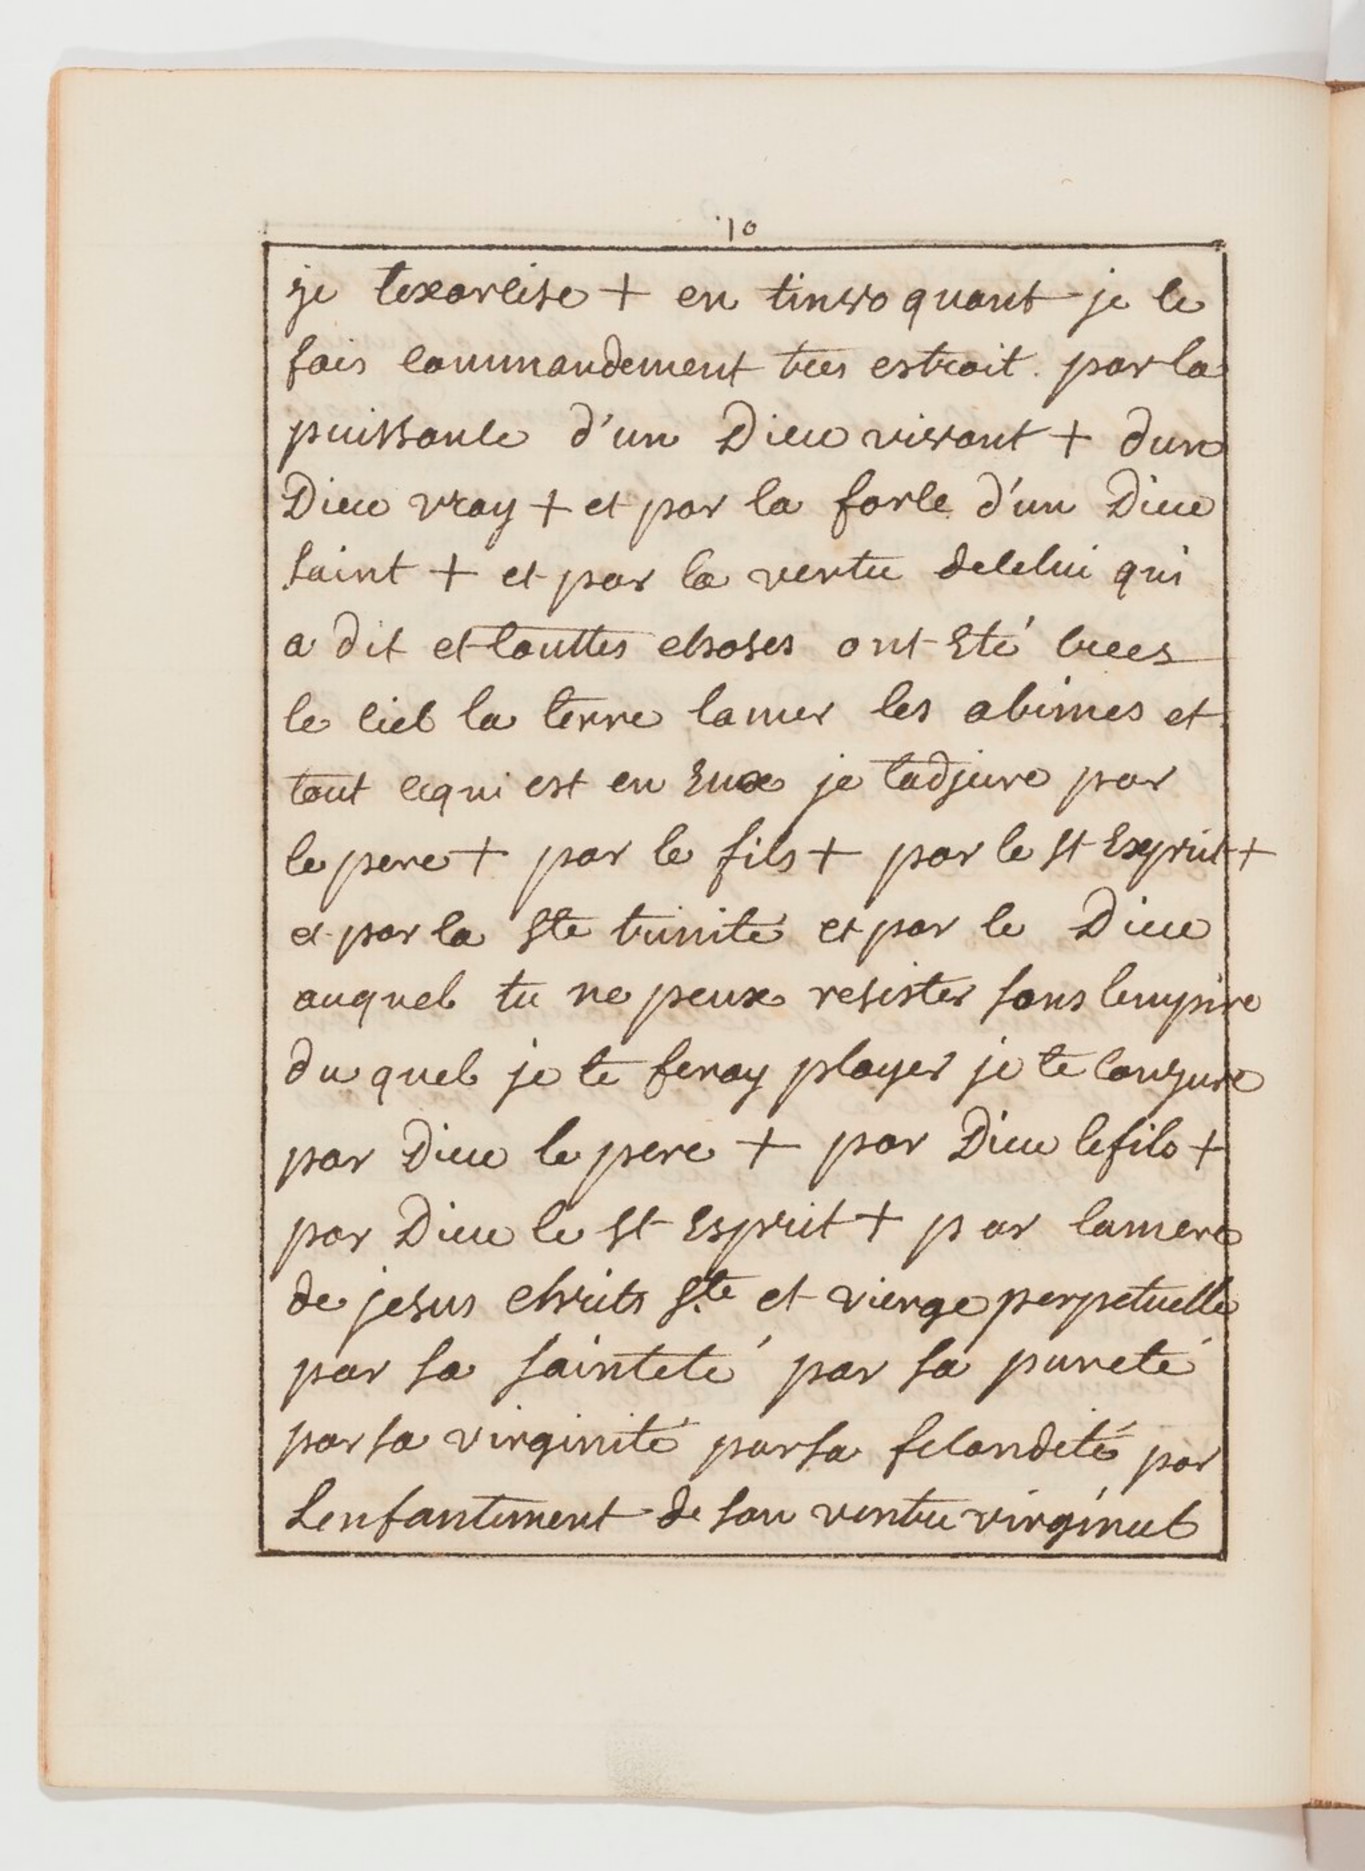 10
je texorcise + en tinvoquant je te
fais commandement tres estroit . par la
puissance d'un Dieu vivant + dun
Dieu vray + et par la force d'un Dieu
saint + et par la vertu decelui qui
a dit et touttes choses ont Eté crees
le ciel la terre lamer les abimes et
tout cequi est en Eux je tadjure par
le pere + par le fils + par le St Esprit +
et par la Ste trinite et par le Dieu
auquel tu ne peux resister sous lempire
du quel je te feray ployer je te conjure
par Dieu le pere + par Dieu lefils +
par Dieu le St Esprit + par lamere
de jesus chrits Ste et vierge perpetuelle
par sa sainteté par sa pureté
par sa virginité par sa fecondité par
Lenfantement de son ventre virginal